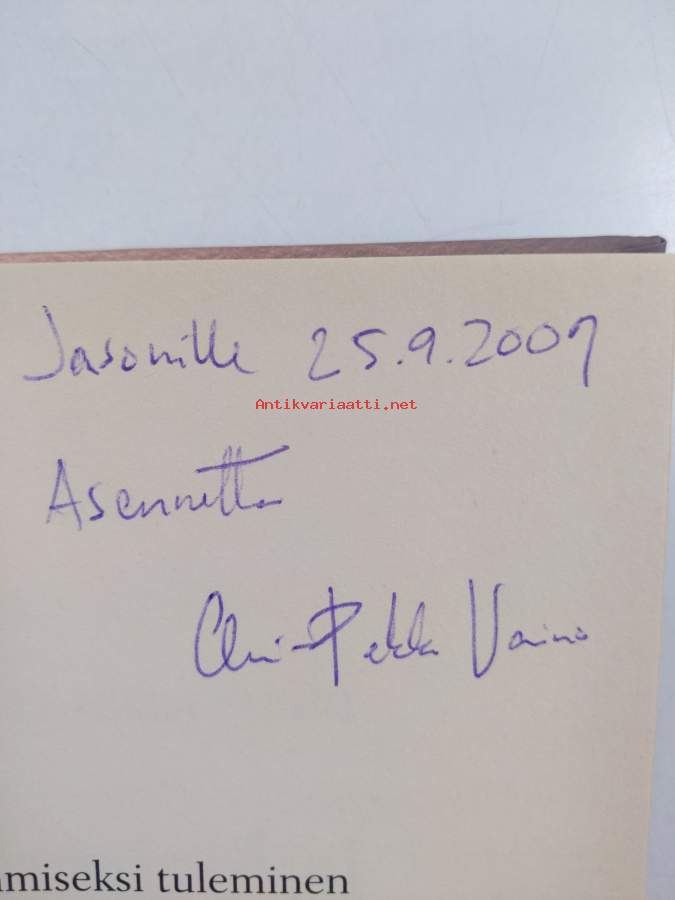 Jasonille 25.9.2009
Antikvariaatti.net
Asennetta
Olli-Pekka Vainio
miseksi tuleminen